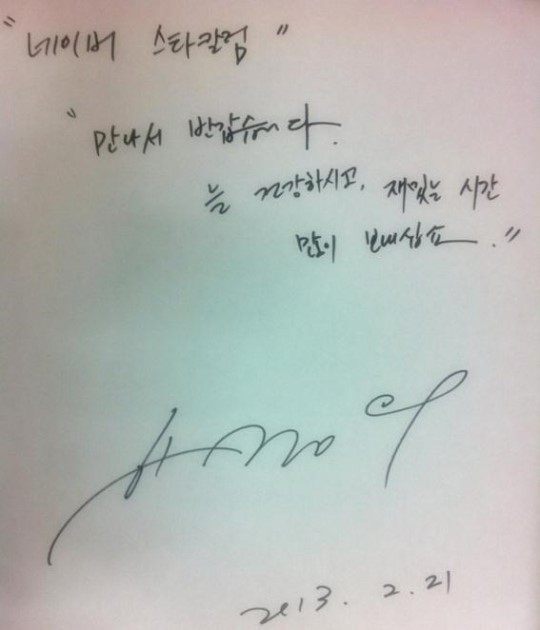 "네이버 스타칼럼"
"만나서 반갑습니다.
늘 건강하시고, 재밌는 시간
많이 보내십쇼."
2013. 2. 21